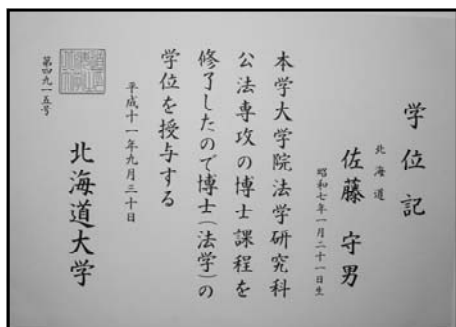 学位記
北海道
佐藤 守男
昭和七年一月二十一日生
本学大学院法学研究科
公法専攻の博士課程を
修了したので博士(法学)の
学位を授与する
平成十一年九月三十日
北海道大学
第四九一五号